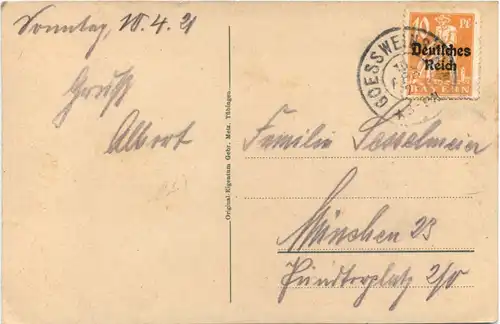 Sonntag, 10.4.21
Gruß
Albert
Original-Eigentum Gebr. Metz, Tübingen
40 Pf
Deutsches
Reich
BAYERN
GOESSWEINSTEIN
Familie Sesselmeier
München 23
2/0